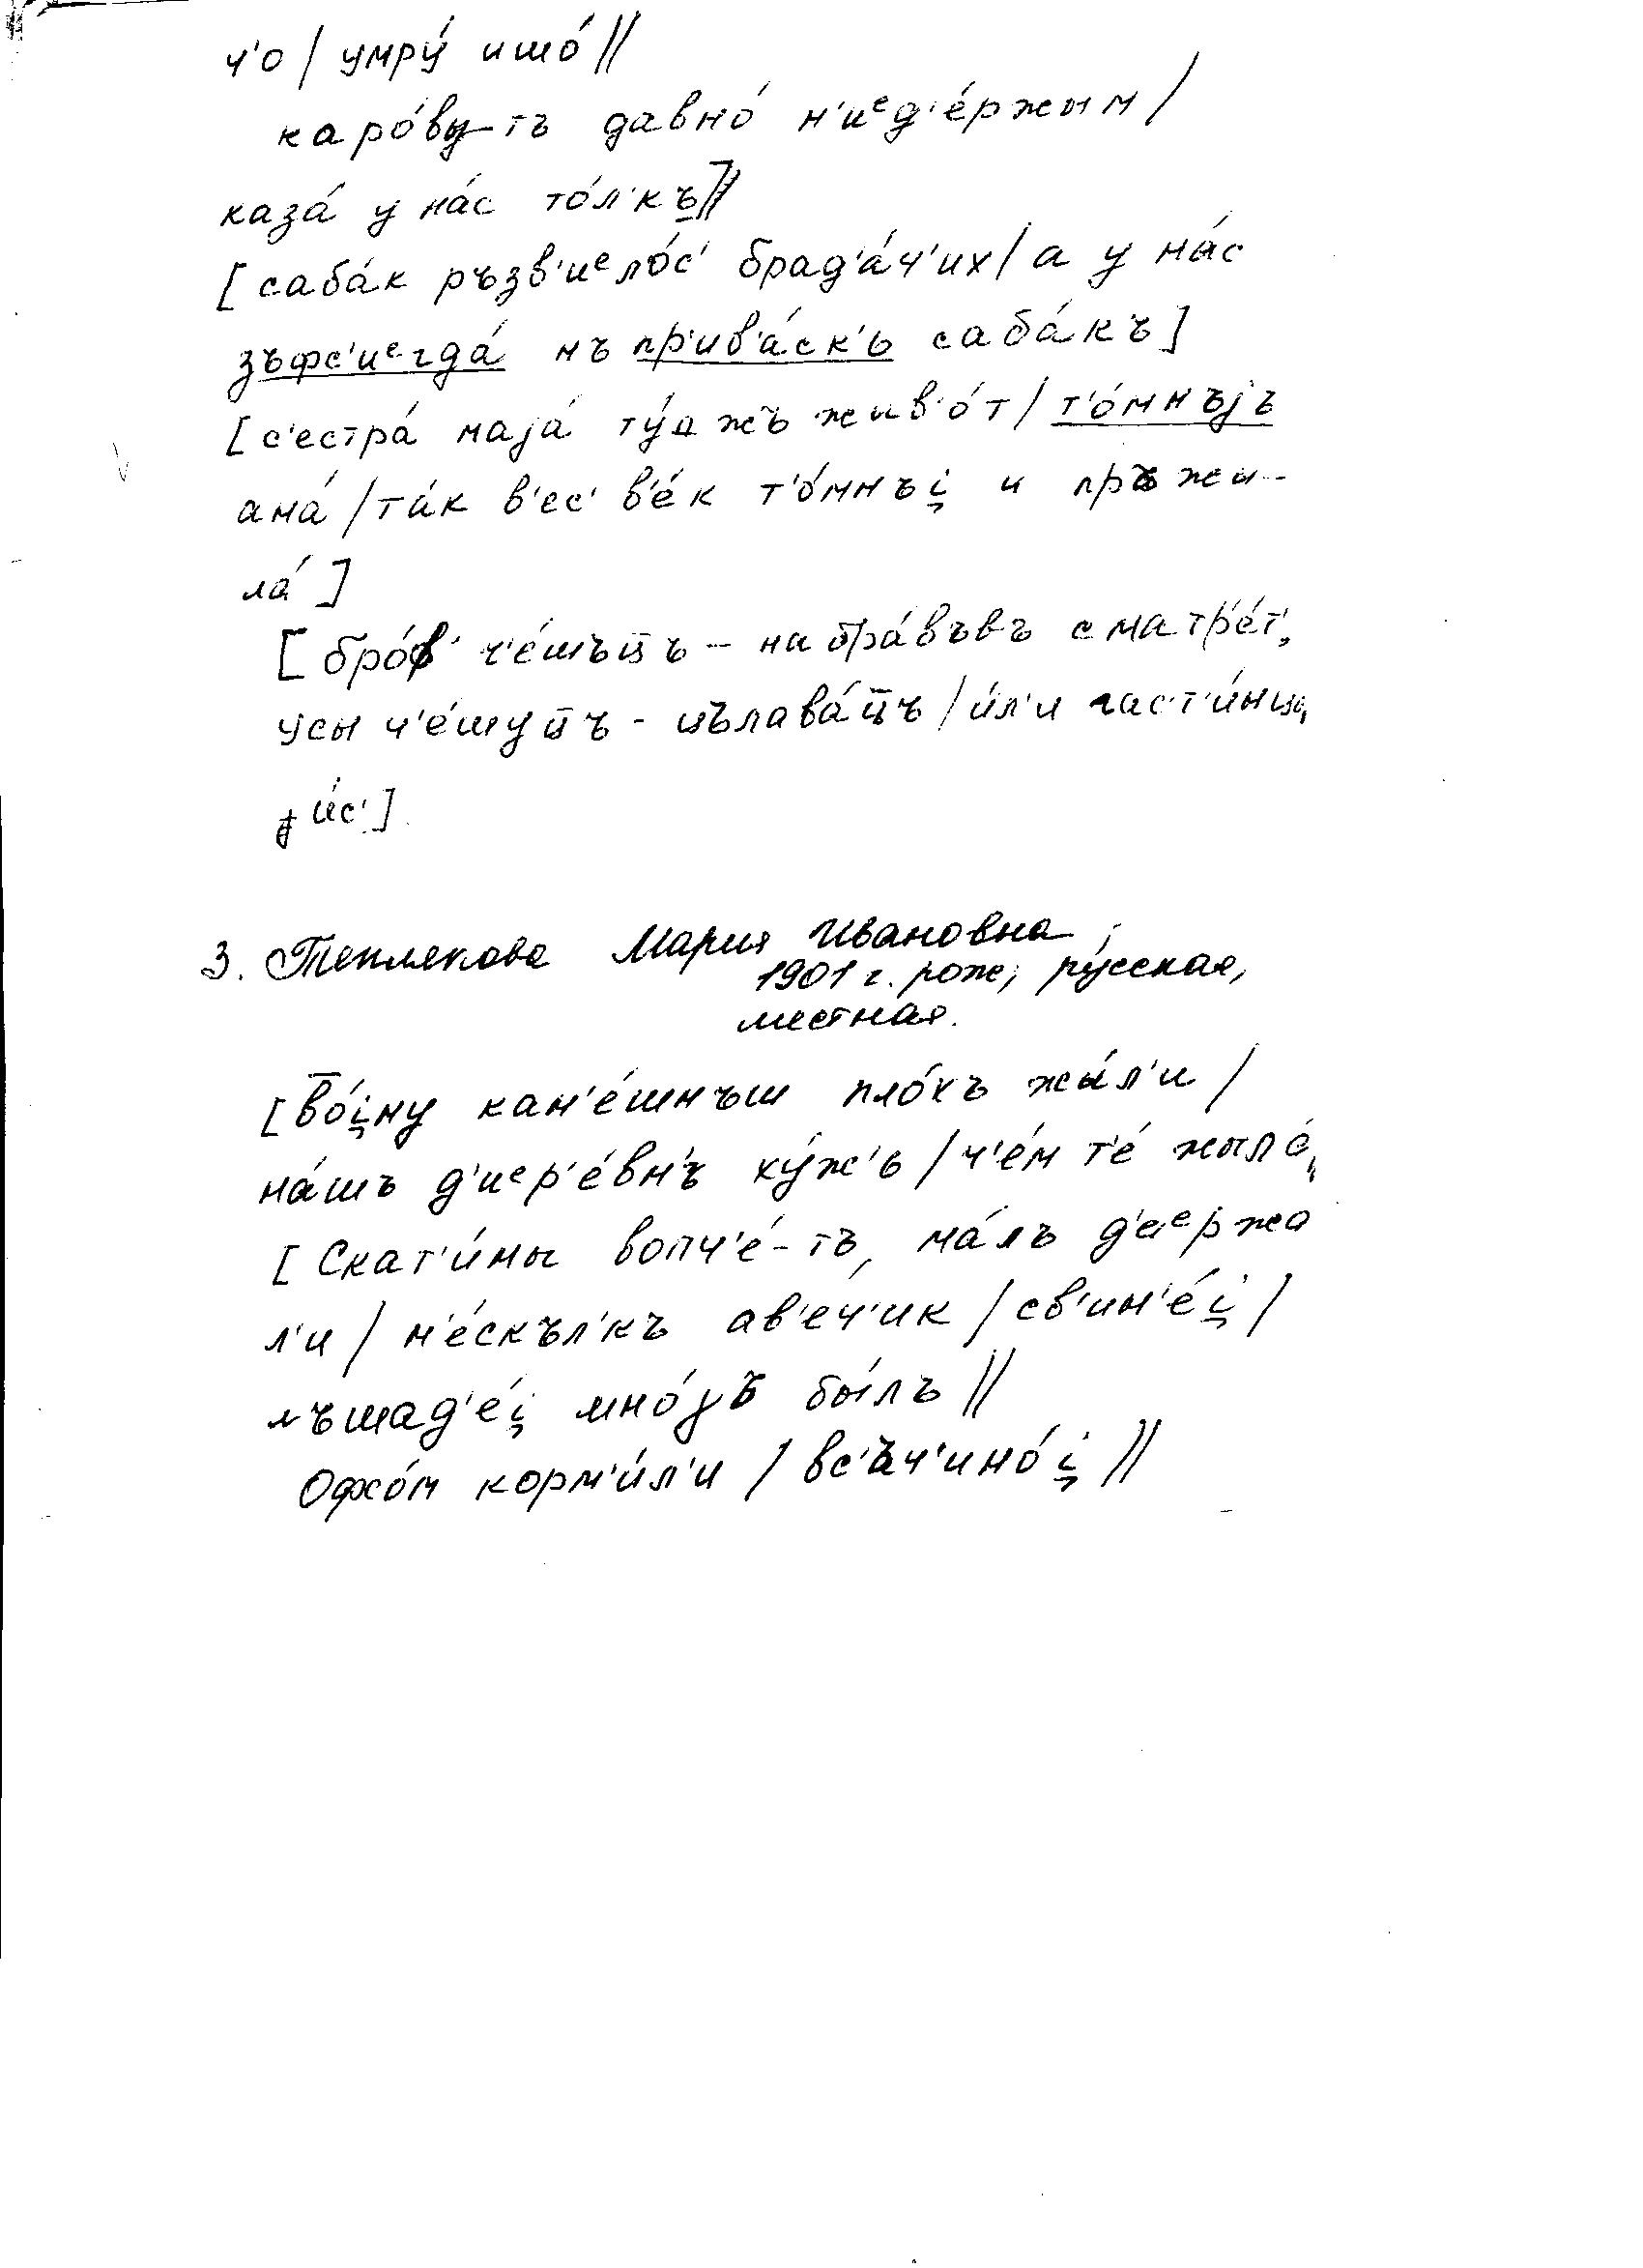 ч'о / умру́ ишо́ //
каро́ву-тъ давно́ н'иед'е́ржым /
каза́ у на́с то́л'къ] //
[саба́к ръзв'иело́с' брад'а́ч'их / а у на́с
зъфс'иегда́ нъ пр'ив'а́ск'ь саба́къ]
[с'естра́ маjа́ ту́д жъ жив'о́т / т'о́мнъjъ
ана́ / та́к в'ес' в'е́к т'о́мнъi̯ и пръжи-
ла́]
[бро́в' ч'е́шъц̅ъ - на бра́въвъ сматр'е́т',
усы ч'е́шуц̅ъ - цълава́ц̅ъ / и́л'и гас'т'и́нца
jис']
3. Теплякова Мария Ивановна,
1901 г. рож, русская,
местная.
[В̅о́i̯ну кан'е́шнъш пло́хъ жы́л'и /
на́шъ д'иер'е́вн'ъ ху́ж'ь / ч'е́м т'е́ жыла́
[Скат'и́ны вопч'е́-тъ, ма́лъ д'иержа
л'и / н'е́скъл'къ ав'еч'ик / св'ин'е́i̯ /
лъшад'е́i̯ мно́γъ бы́лъ //
Офсо́м корм'и́л'и / вс'ъч'ино́i̯ //